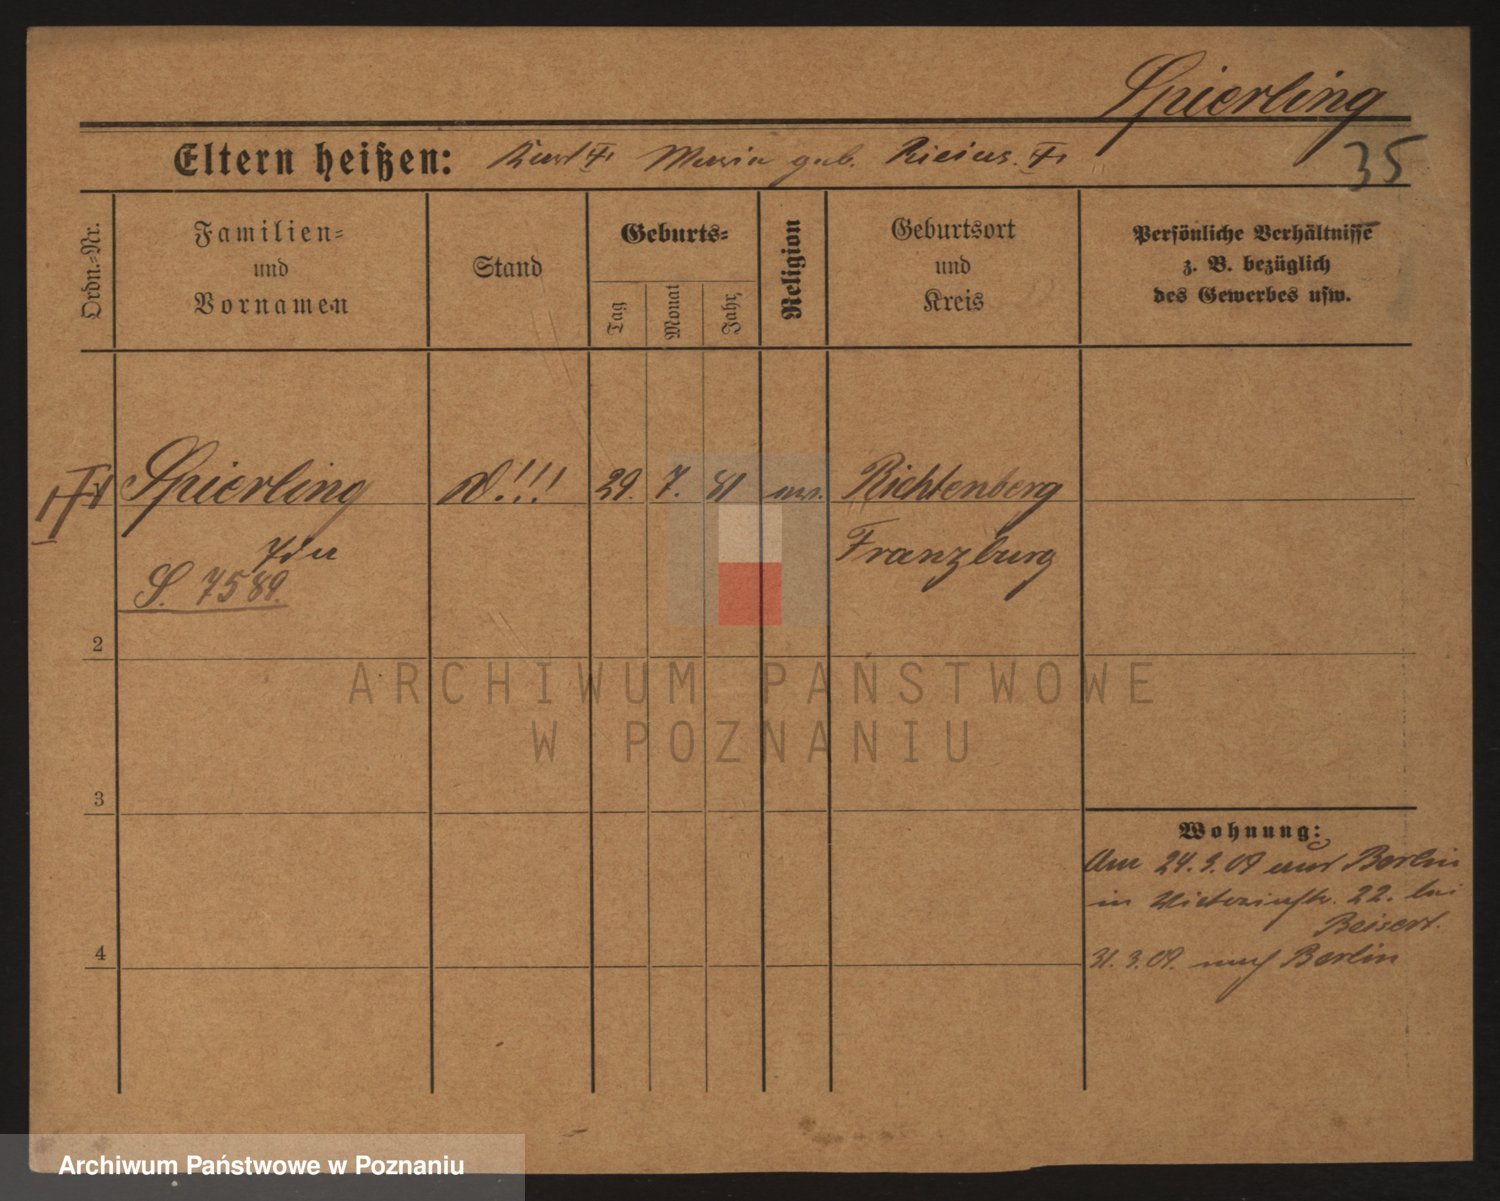 Spierling
35
Eltern heißen: Kurt Maria geb. Ricius.
Ordn.-Nr.
Familien-
und
Vornamen
Stand
Geburts-
Tag
Monat
Jahr
Religion
Geburtsort
und
Kreis
Persönliche Verhältnisse
z. B. bezüglich
des Gewerbes usw.
Spierling !!! 29. 7. 81 Richtenberg
Ida Franzburg
S. 7589.
2
ARCHIWUM PAŃSTWOWE
W POZNANIU
3
Wohnung:
Am 24.3.09 aus Berlin
in Victoriastr. 22. bei
Beisert.
4
31.3.09. nach Berlin
Archiwum Państwowe w Poznaniu